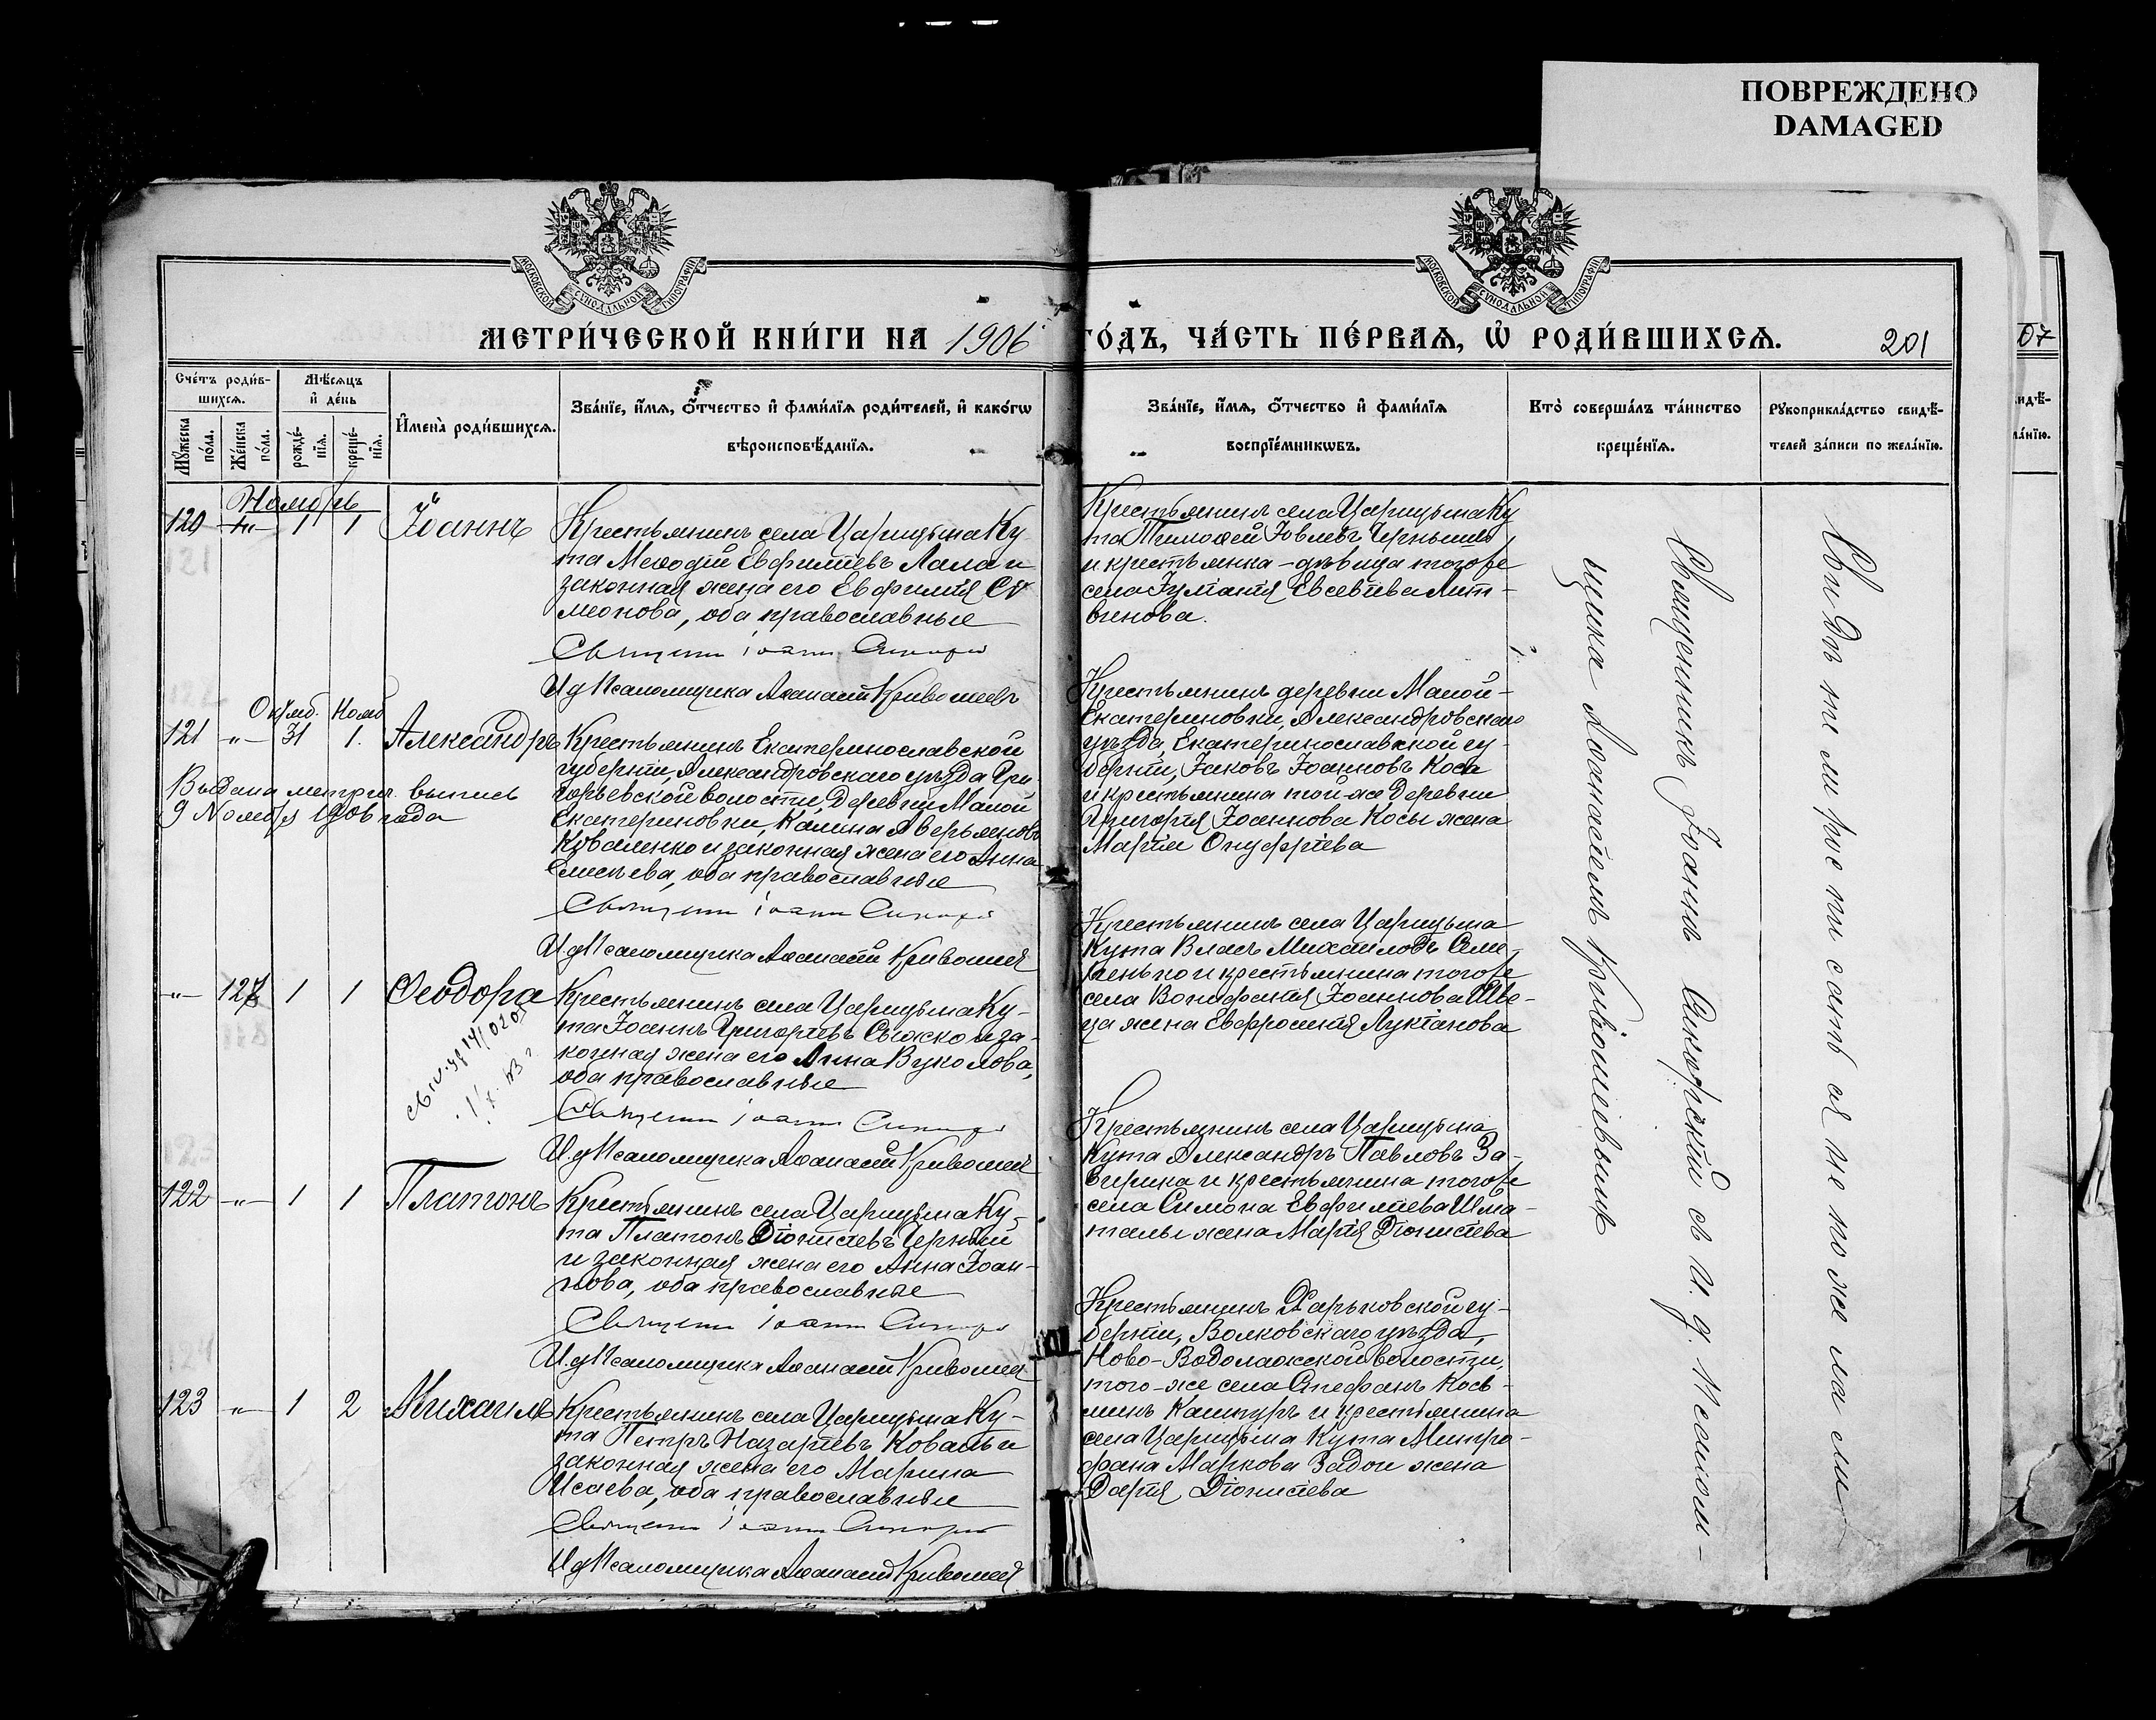 ПОВРЕЖДЕНО
DAMAGED
МОСКОВСКОЙ СѴНОДАЛЬНОЙ ТИПОГРАФІИ
МОСКОВСКОЙ СѴНОДАЛЬНОЙ ТИПОГРАФІИ
МЕТРИ́ЧЕСКОЙ КНИ́ГИ НА 1906 ГО́ДЪ, ЧА́СТЬ ПЕ́РВАѦ, Ѡ҆ РОДИ́ВШИХСѦ.
201
07
Сче́тъ роди́в-
шихсѧ.
Мѣ́сѧцъ
и҆ де́нь
Мꙋ́жеска
по́ла.
Же́нска
по́ла.
рожде́-
нїѧ.
креще́-
нїѧ.
И҆мена̀ роди́вшихсѧ.
Зва́нїе, и҆́мѧ, ѻ҆́тчество и҆ фами́лїѧ роди́телей, и҆ како́гѡ
вѣроисповѣ́данїѧ.
Зва́нїе, и҆́мѧ, ѻ҆́тчество и҆ фами́лїѧ
воспрїе́мникѡвъ.
Кто̀ соверша́лъ та́инство
креще́нїѧ.
Рꙋкоприкла́дство свидѣ́-
телей за́писи по жела́нїю.
Ноябрь
120 -"- 1 1 Іоаннъ
Крестьянинъ села Царицына Ку
та Меѳодій Евфиміевъ Лапа и
законная жена его Евфимія Си
меонова, оба православные
Священ Іоанн
И д Псаломщика Аѳанасій Кривошеевъ
Крестьянинъ села Царицына Ку
та Тимоѳей Іовлевъ Чернышъ
и крестьянка-дѣвица того же
села Іуліанія Евсевіева Лит-
винова.
Октяб. Нояб
121 -"- 31 1. Александръ
Выдана метрич. выпись
9 Ноября 1906 года
Крестьянинъ Екатеринославской
губерніи, Александровскаго уѣзда Гри-
горьевской волости, деревни Малой
Екатериновки, Калина Аверьяновъ
Коваленко и законная жена его Анна
Елисѣева, оба православные
Священ Іоанн
И.д Псаломщика Аѳанасій Кривошея
Крестьянинъ деревни Малой-
Екатериновки, Александровскаго
уѣзда, Екатеринославской гу-
берніи, Іаковъ Іоанновъ Коса
и крестьянина той-же деревни
Григорія Іоаннова Косы жена
Марія Онуфріева
-"- 127 1 1 Ѳеодора
Крестьянинъ села Царицына Ку-
та Іоаннъ Григорьевъ и за-
конная жена его Анна Вуколова,
оба православные
Священ Іоанн
И.д Псаломщика Аѳанасій Кривошея
Крестьянинъ села Царицына
Кута Власъ Михаиловъ Семе-
ненько и крестьянина того же
села Вонифатія Іоаннова Шве-
ца жена Евфросинія Лукіанова
122 -"- 1 1 Платонъ
Крестьянинъ села Царицына Ку-
та Платонъ Діонисіевъ Черный
и законная жена его Анна Іоан-
нова, оба православные
Священ Іоанн
И.д Псаломщика Аѳанасій Кривошея
Крестьянинъ села Царицына
Кута Александръ Павловъ За-
вирюха и крестьянина того же
села Симона Евфиміева Шма-
талы жена Марія Діонисіева
123 -"- 1 2 Михаилъ
Крестьянинъ села Царицына Ку-
та Петръ Назаріевъ Коваль и
законная жена его Марина
Исаева, оба православные
Священ Іоанн
И д Псаломщика Аѳанасій Кривошея
Крестьянинъ Харьковской гу-
берніи, Волковскаго уѣзда,
Ново-Водолажской волости,
того-же села Стефанъ Косъ-
минъ Кашпуръ и крестьянина
села Царицына Кута Митро-
фана Маркова Задои жена
Дарія Діонисіева
Священникъ Іоаннъ съ И. д. Псалом-
щика Аѳанасіемъ Кривошеевымъ